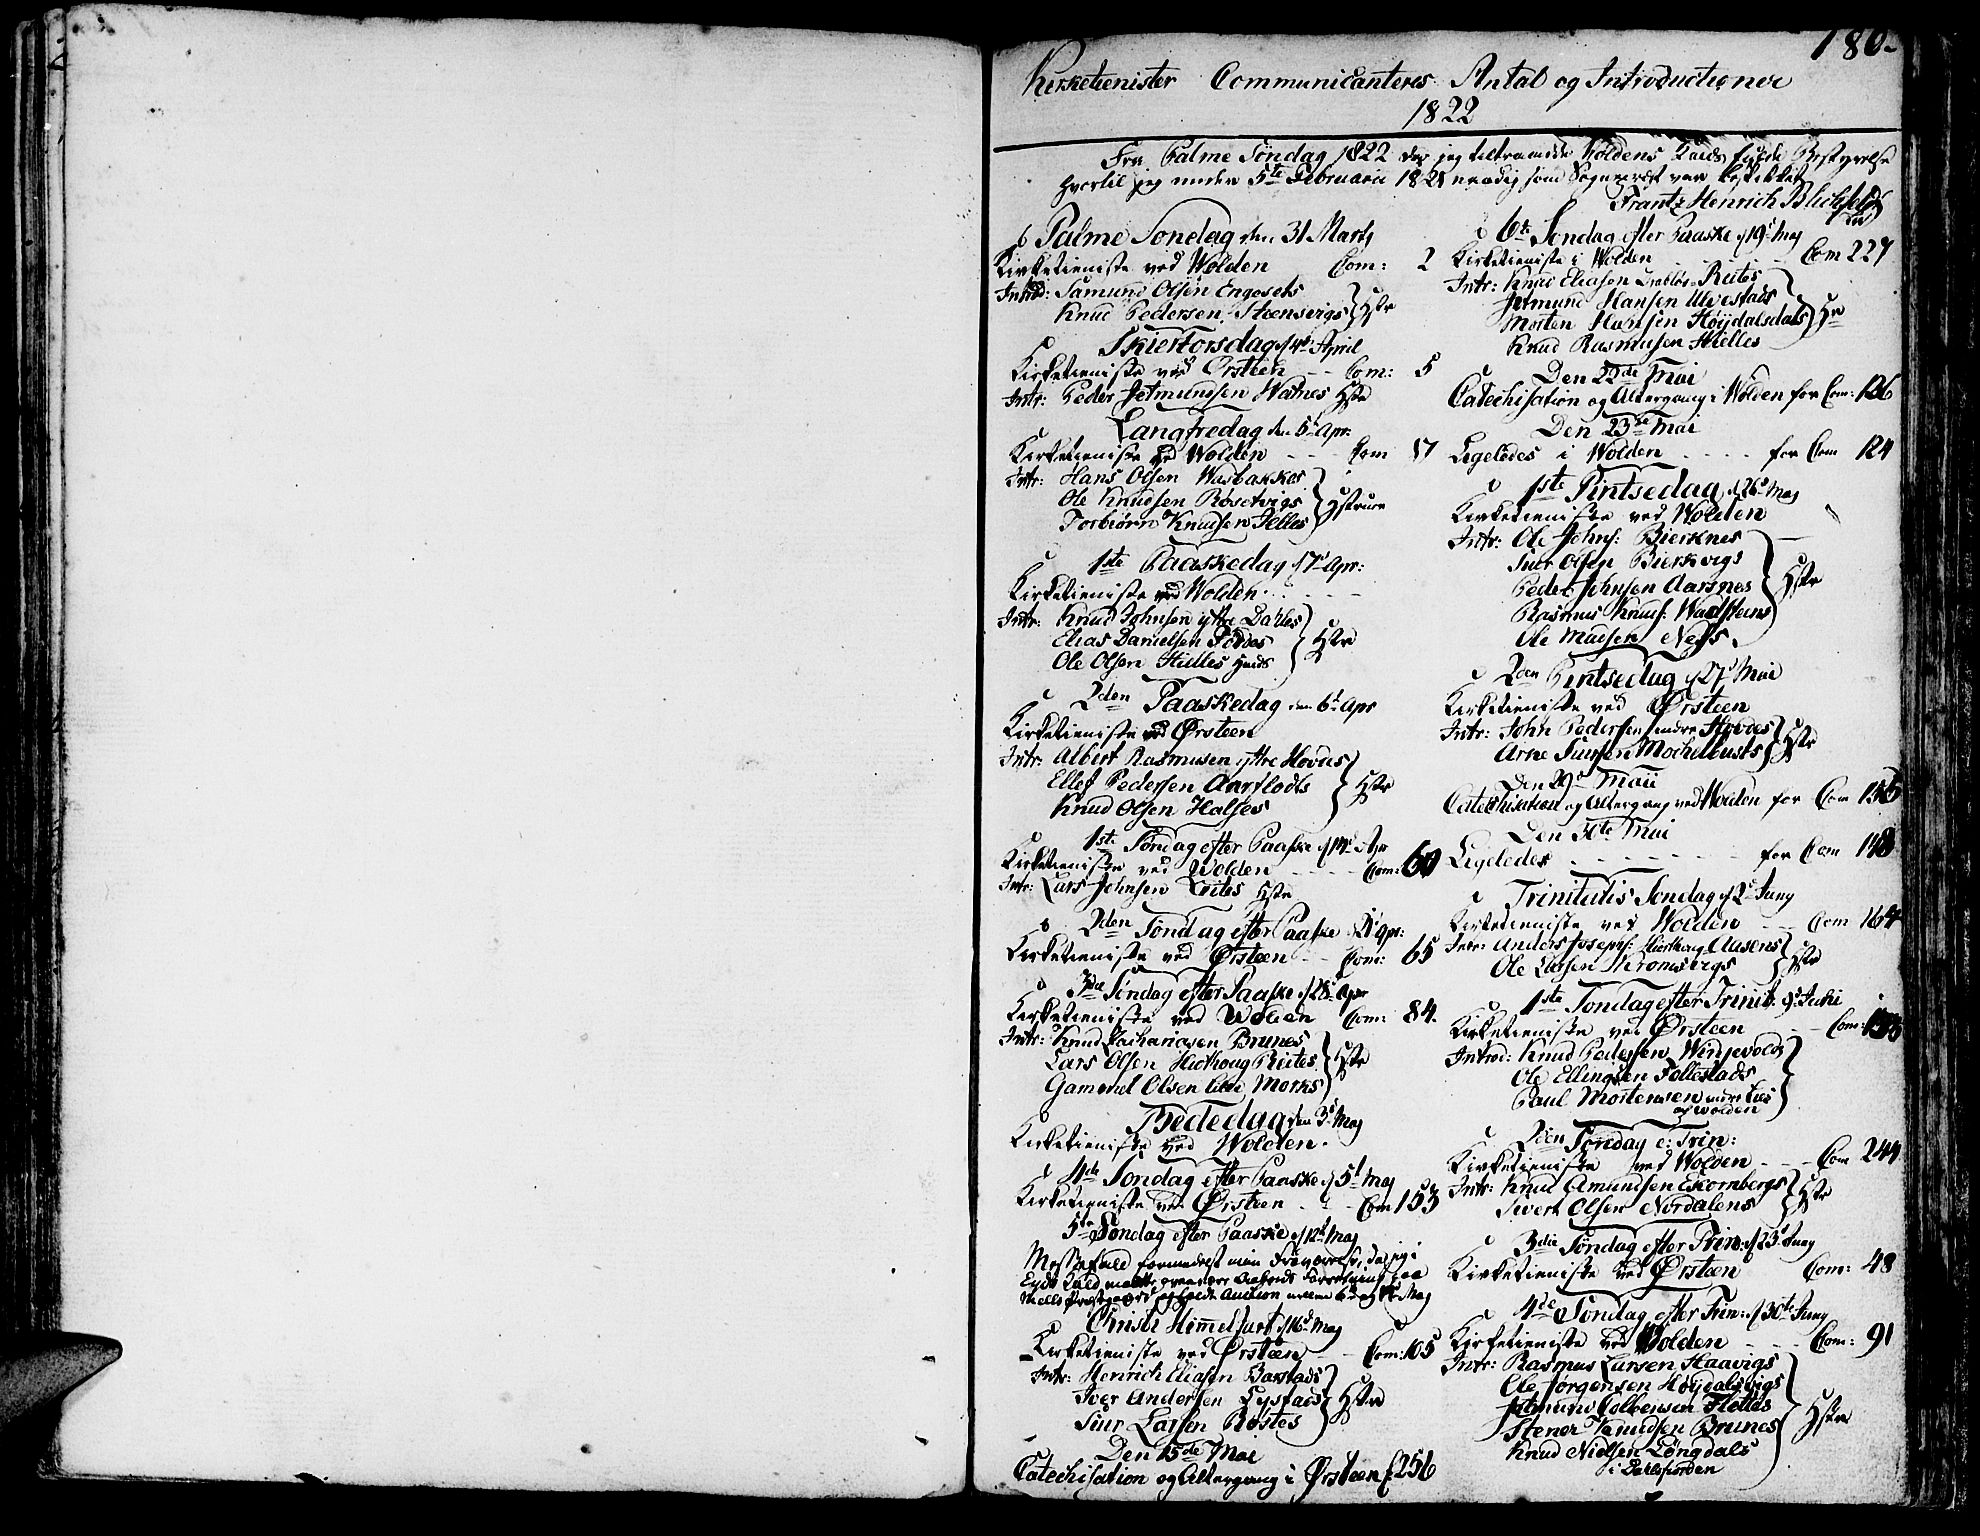 180.
Kirketienister Communicanteres Antal og Introductioner
1822
Fra Palme Søndag 1822 da jeg tiltraadde Woldens Kalds fulde Bestyrelse
hvortil jeg under 5te Februarii 182 naadig som Sognepræst var beskikket
Frantz Henrich Blichfeldt
Palme Søndag den 31 Marts
Kirketieniste ved Wolden Com: 2
Introd: Samund Olsen Engesets
Knud Pedersen Steensvigs Hstr
Skiertorsdag d 4de April
Kirketieniste ved Ørsteen -- Com: 5
Intr: Peder Jetmundsen Watnes Hstr
Langfredag den 5te Apr:
Kirketieniste ved Wolden --- Com 17
Intr: Hans Olsen Wasbakkes
Ole Knudsen Rosetvigs
Torbiørn Knudsen Selles Hstruer
1ste Paaskedag d 7de Apr:
Kirketieniste ved Wolden
Intr: Knud Johnsen ytre Dahles
Elias Danielsen
Ole Olsen Hielles Hstr
2den Paaskedag den Apr
Kirketieniste ved Ørsteen
Intr: Albert Rasmusen yttre Hovdes
Ellef Pedersen Aarflodts
Knud Olsen Halses Hstr
1ste Søndag efter Paaske d 14de Apr
Kirketieniste ved Wolden --- Com: 60
Intr: Lars Johnsen Hstr
2den Søndag efter Paaske d 21 Apr:
Kirketieniste ved Ørsteen -- Com: 65
3die Søndag efter Paaske d 28de Apr
Kirketieniste ved Wolden Com: 84.
Intr: Knud Zachariasen Brunes
Lars Olsen Reites
Gammel Olsen lille Morks Hstr
Bededag den 3de Maj
Kirketieniste ved Wolden.
4de Søndag efter Paaske d 5te Maj
Kirketieniste ved Ørsteen --- Com 153
5te Søndag efter Paaske d 12te Maj
Messefald formedelst min Fraværelse, da jeg i
Christi Himmelfart d 16de Maj
Kirketieniste ved Ørsteen -- Com: 105
Intr: Henrich Eliasen Barstads
Iver Andersen Lystads
Siur Larsen Røstes Hstre
Den 15de Mai
Catechisation og Altergang i Ørsteen f 256
6te Søndag efter Paaske d 19de Maj
Kirketieniste i Wolden -- Com 227
Intr: Knud Eliasen Reites
Jetmund Hansen Ulvestads
Morten Hansen Høydalsdals
Knud Rasmusen Hielles Hstr
Den 22de Mai
Catechisation og Altergang i Wolden for Com: 126
Den 23de Mai
Ligeledes i Wolden ---- for Com 124
1ste Pintsedag d 26de Maj
Kirketieniste ved Wolden
Intr: Ole Johns: Bierknes
Siur Olsen Bierkvigs
Peder Johnsen Aarsnes
Rasmus Knuds: Wadsteens
Ole Madsen Ness. Hstr
2den Pintsedag d 27de Mai
Kirketieniste ved Ørsteen
Intr: John Pedersen indre Hovdes
Arne Siursen Mochelbusts Hstr
Den 29de Maii
Catechisation og Altergang ved Wolden for Com 156
Den 30te Mai
Ligeledes -------- for Com 148
Trinitatis Søndag d 2de Juny
Kirketieniste ved Wolden --- Com 164
Intr: Anders Josephs: Aasens
Ole Larsen Hstr
1ste Søndag efter Trinit: 9de Juni
Kirketieniste ved Ørsteen -- Com:
Introd: Knud Pedersen Wingevolds
Ole Ellingsen Follestads
Paul Mortensen
af Wolden
2den Søndag e: Trin:
Kirketieniste ved Wolden --- Com 244
Intr: Knud Amundsen Egornbergs
Sivert Olsen Nordalens Hstr
3die Søndag efter Trin: d 23de Juny
Kirketieniste ved Ørsteen Com: 48
4de Søndag efter Trin: d 30te Juny
Kirketieniste ved Wolden --- Com: 91
Intr: Rasmus Larsen Haavigs
Ole Jørgensen Høydalsvigs
Jetmund Colbensen Flottes
Stener Knudsen Brunes
Knud Nielsen Løngdals
i Dahlsfiorden Hstre